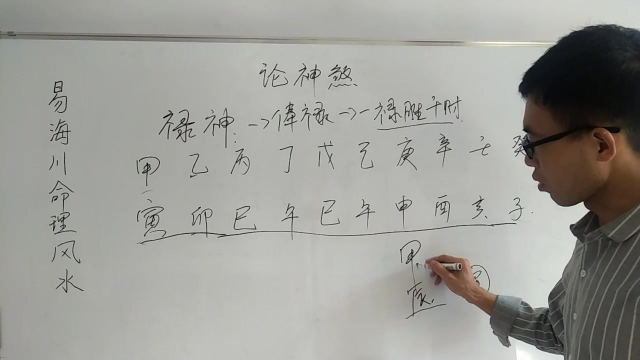 论神煞
易海川命理风水
禄神:→俸禄→一禄胜千财
甲乙丙丁戊己庚辛壬癸
寅卯巳午巳午申酉亥子
甲
寅